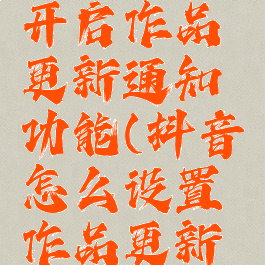 开启作品
更新通知
功能(抖音
怎么设置
作品更新